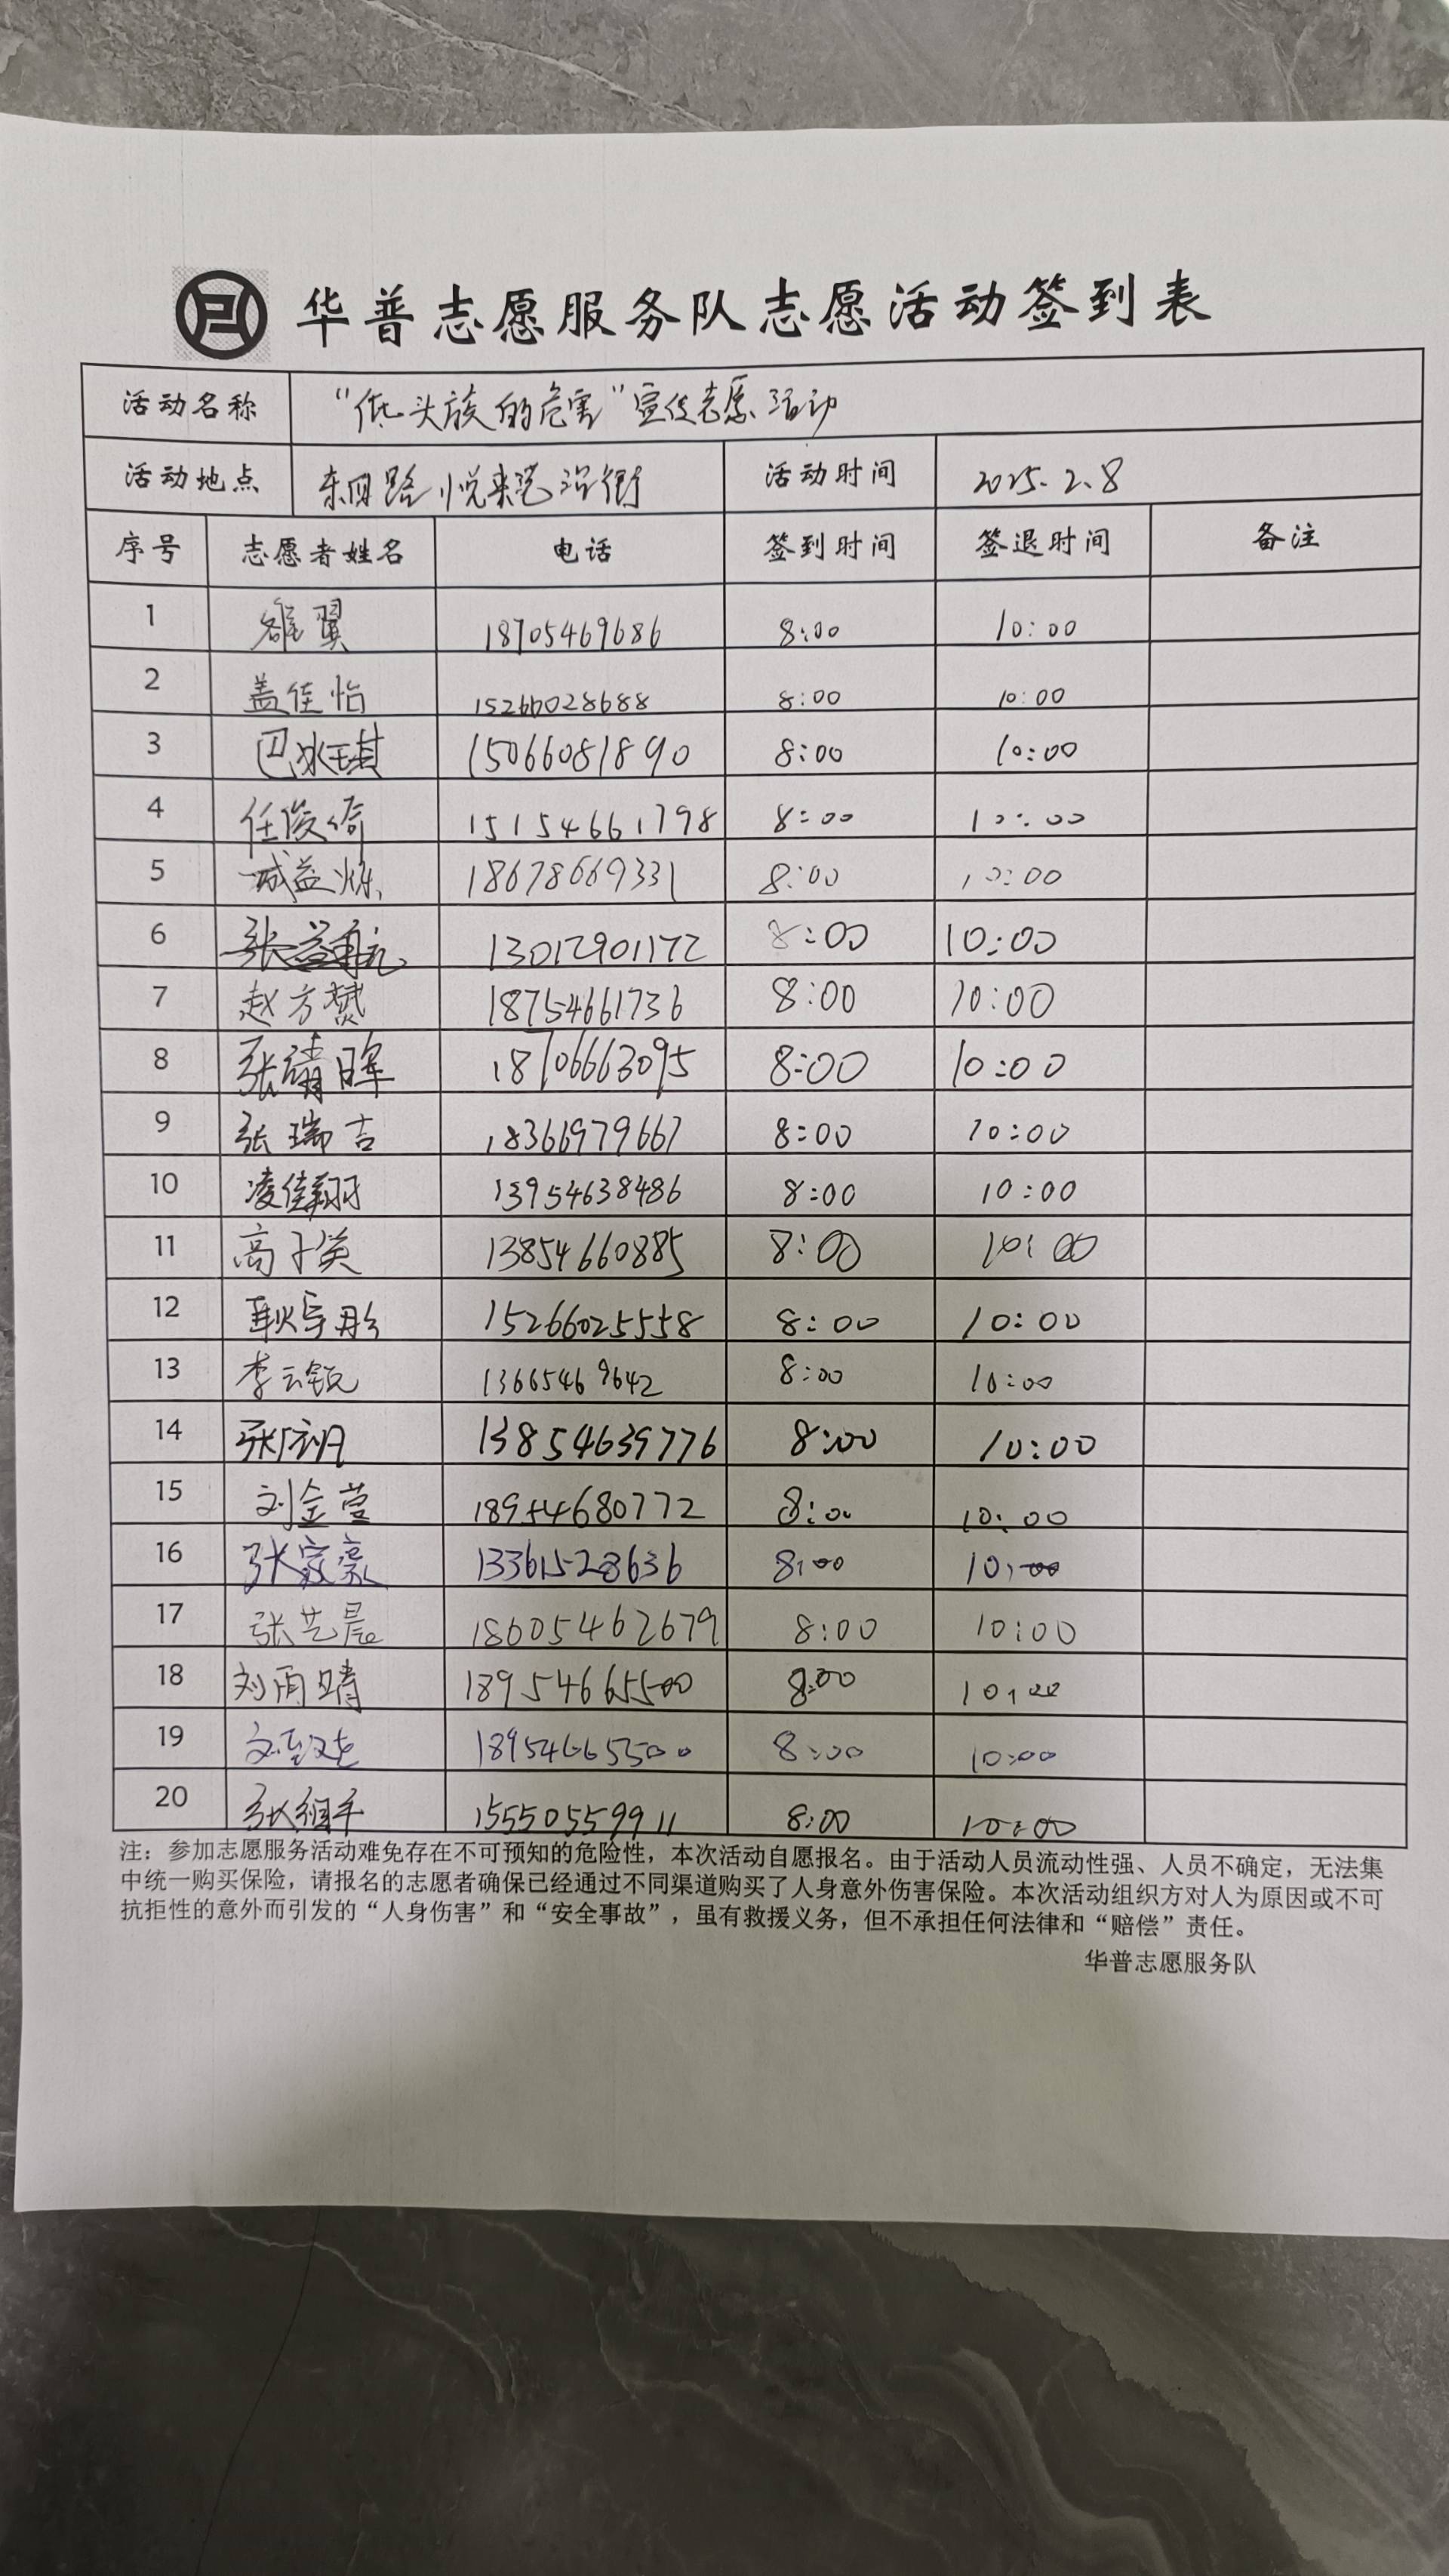 华普志愿服务队志愿活动签到表
活动名称 “低头族的危害”宣传志愿活动
活动地点 东四路悦来艺沿街 活动时间 2025.2.8
序号 志愿者姓名 电话 签到时间 签退时间 备注
1 翼 18705469686 8:00 10:00
2 盖佳怡 15266028688 8:00 10:00
3 巴冰琪 15066081890 8:00 10:00
4 任俊倚 15154661798 8:00 10:00
5 8:00 10:00
6 张益航 13012901172 8:00 10:00
7 赵方 18754661736 8:00 10:00
8 张靖晖 18706663095 8:00 10:00
9 张瑞吉 18366979667 8:00 10:00
10 凌佳翔 13954638486 8:00 10:00
11 高子英 13854660885 8:00 10:00
12 耿 15266025558 8:00 10:00
13 李云锐 13665469642 8:00 10:00
14 张 13854639776 8:00 10:00
15 刘金莹 18954680772 8:00 10:00
16 张家豪 13361528636 8:00 10:00
17 张艺晨 18605462679 8:00 10:00
18 刘雨晴 18954665500 8:00 10:00
19 8:00 10:00
20 张 15550559911 8:00 10:00
注：参加志愿服务活动难免存在不可预知的危险性，本次活动自愿报名。由于活动人员流动性强、人员不确定，无法集
中统一购买保险，请报名的志愿者确保已经通过不同渠道购买了人身意外伤害保险。本次活动组织方对人为原因或不可
抗拒性的意外而引发的“人身伤害”和“安全事故”，虽有救援义务，但不承担任何法律和“赔偿”责任。
华普志愿服务队